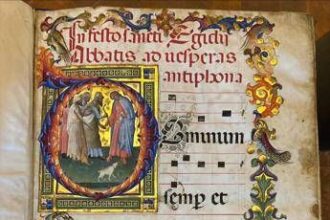 In festo sancti Egidij
Abbatis ad vesperas
antiphona
Ominum
semp et